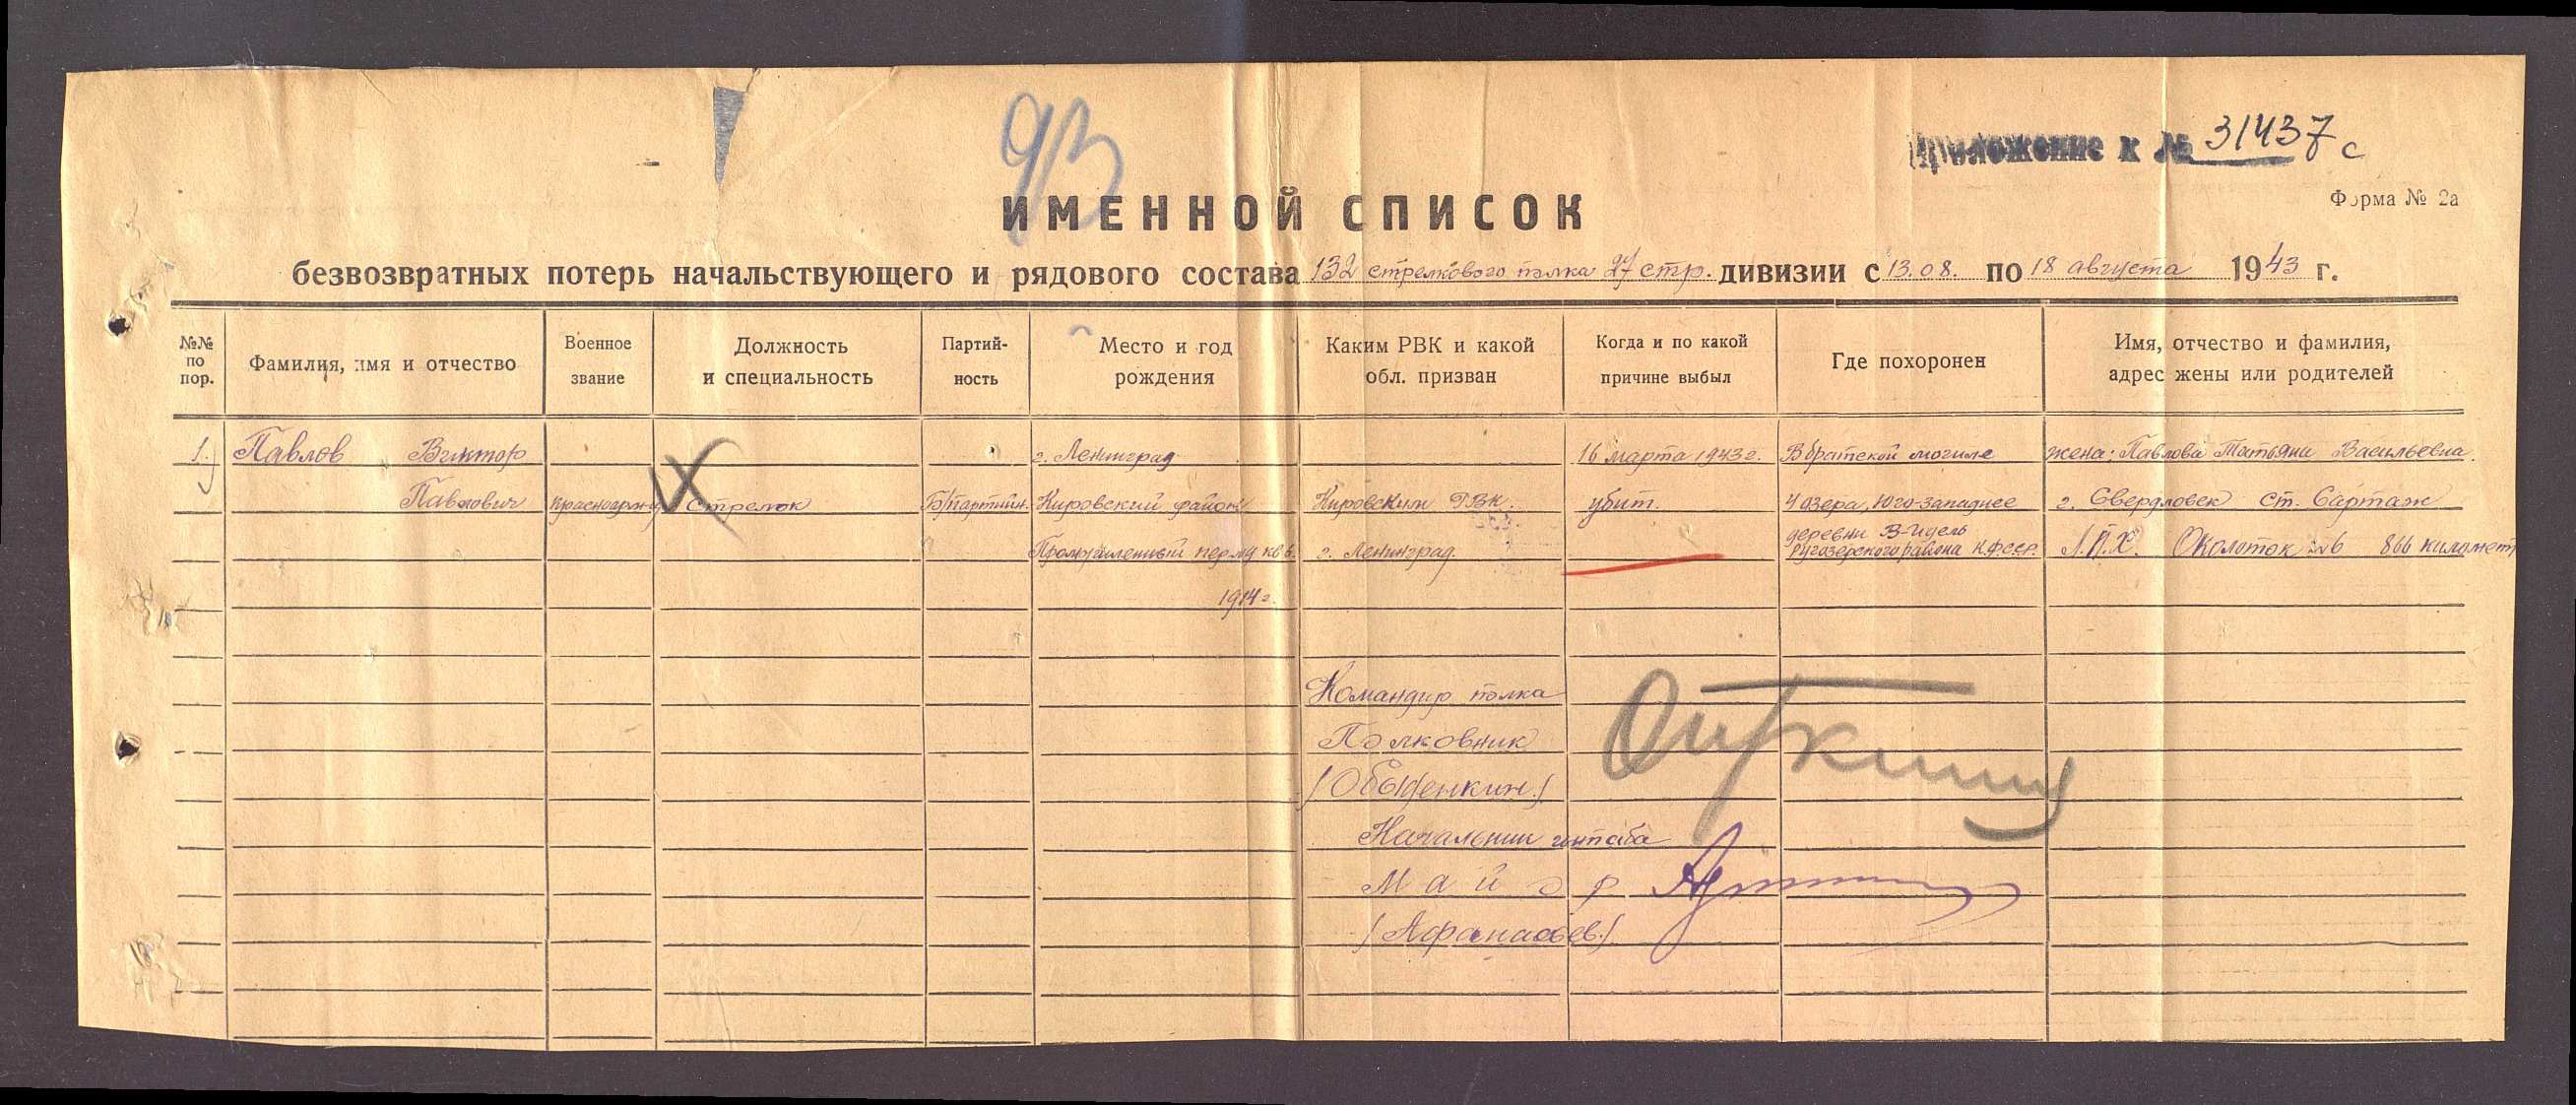 93
Приложение к № 31437с
Форма № 2а
ИМЕННОЙ СПИСОК
безвозвратных потерь начальствующего и рядового состава 132 стрелкового полка 27 стр. дивизии с 13.08. по 18 августа 1943 г.
№№ по пор.
Фамилия, имя и отчество
Военное звание
Должность и специальность
Партий- ность
Место и год рождения
Каким РВК и какой обл. призван
Когда и по какой причине выбыл
Где похоронен
Имя, отчество и фамилия, адрес жены или родителей
1. Павлов Виктор г. Ленинград 16 марта 1943г. В братской могиле жена: Павлова Татьяна Васильевна.
Павлович красноарм-ц Стрелок Б/партийн. Кировский район Кировским РВК. убит. 4 озера, Юго-западнее г. Свердловск ст. Сарташ
Промышленный пер. г. Ленинград деревни В-Идель Ругозерского района К.Ф.ССР. Л.П.Х. Околоток №6 866 километ
1914г.
Командир полка
Полковник
/Обыденкин./
Начальник штаба
Майор
/Афанасьев./